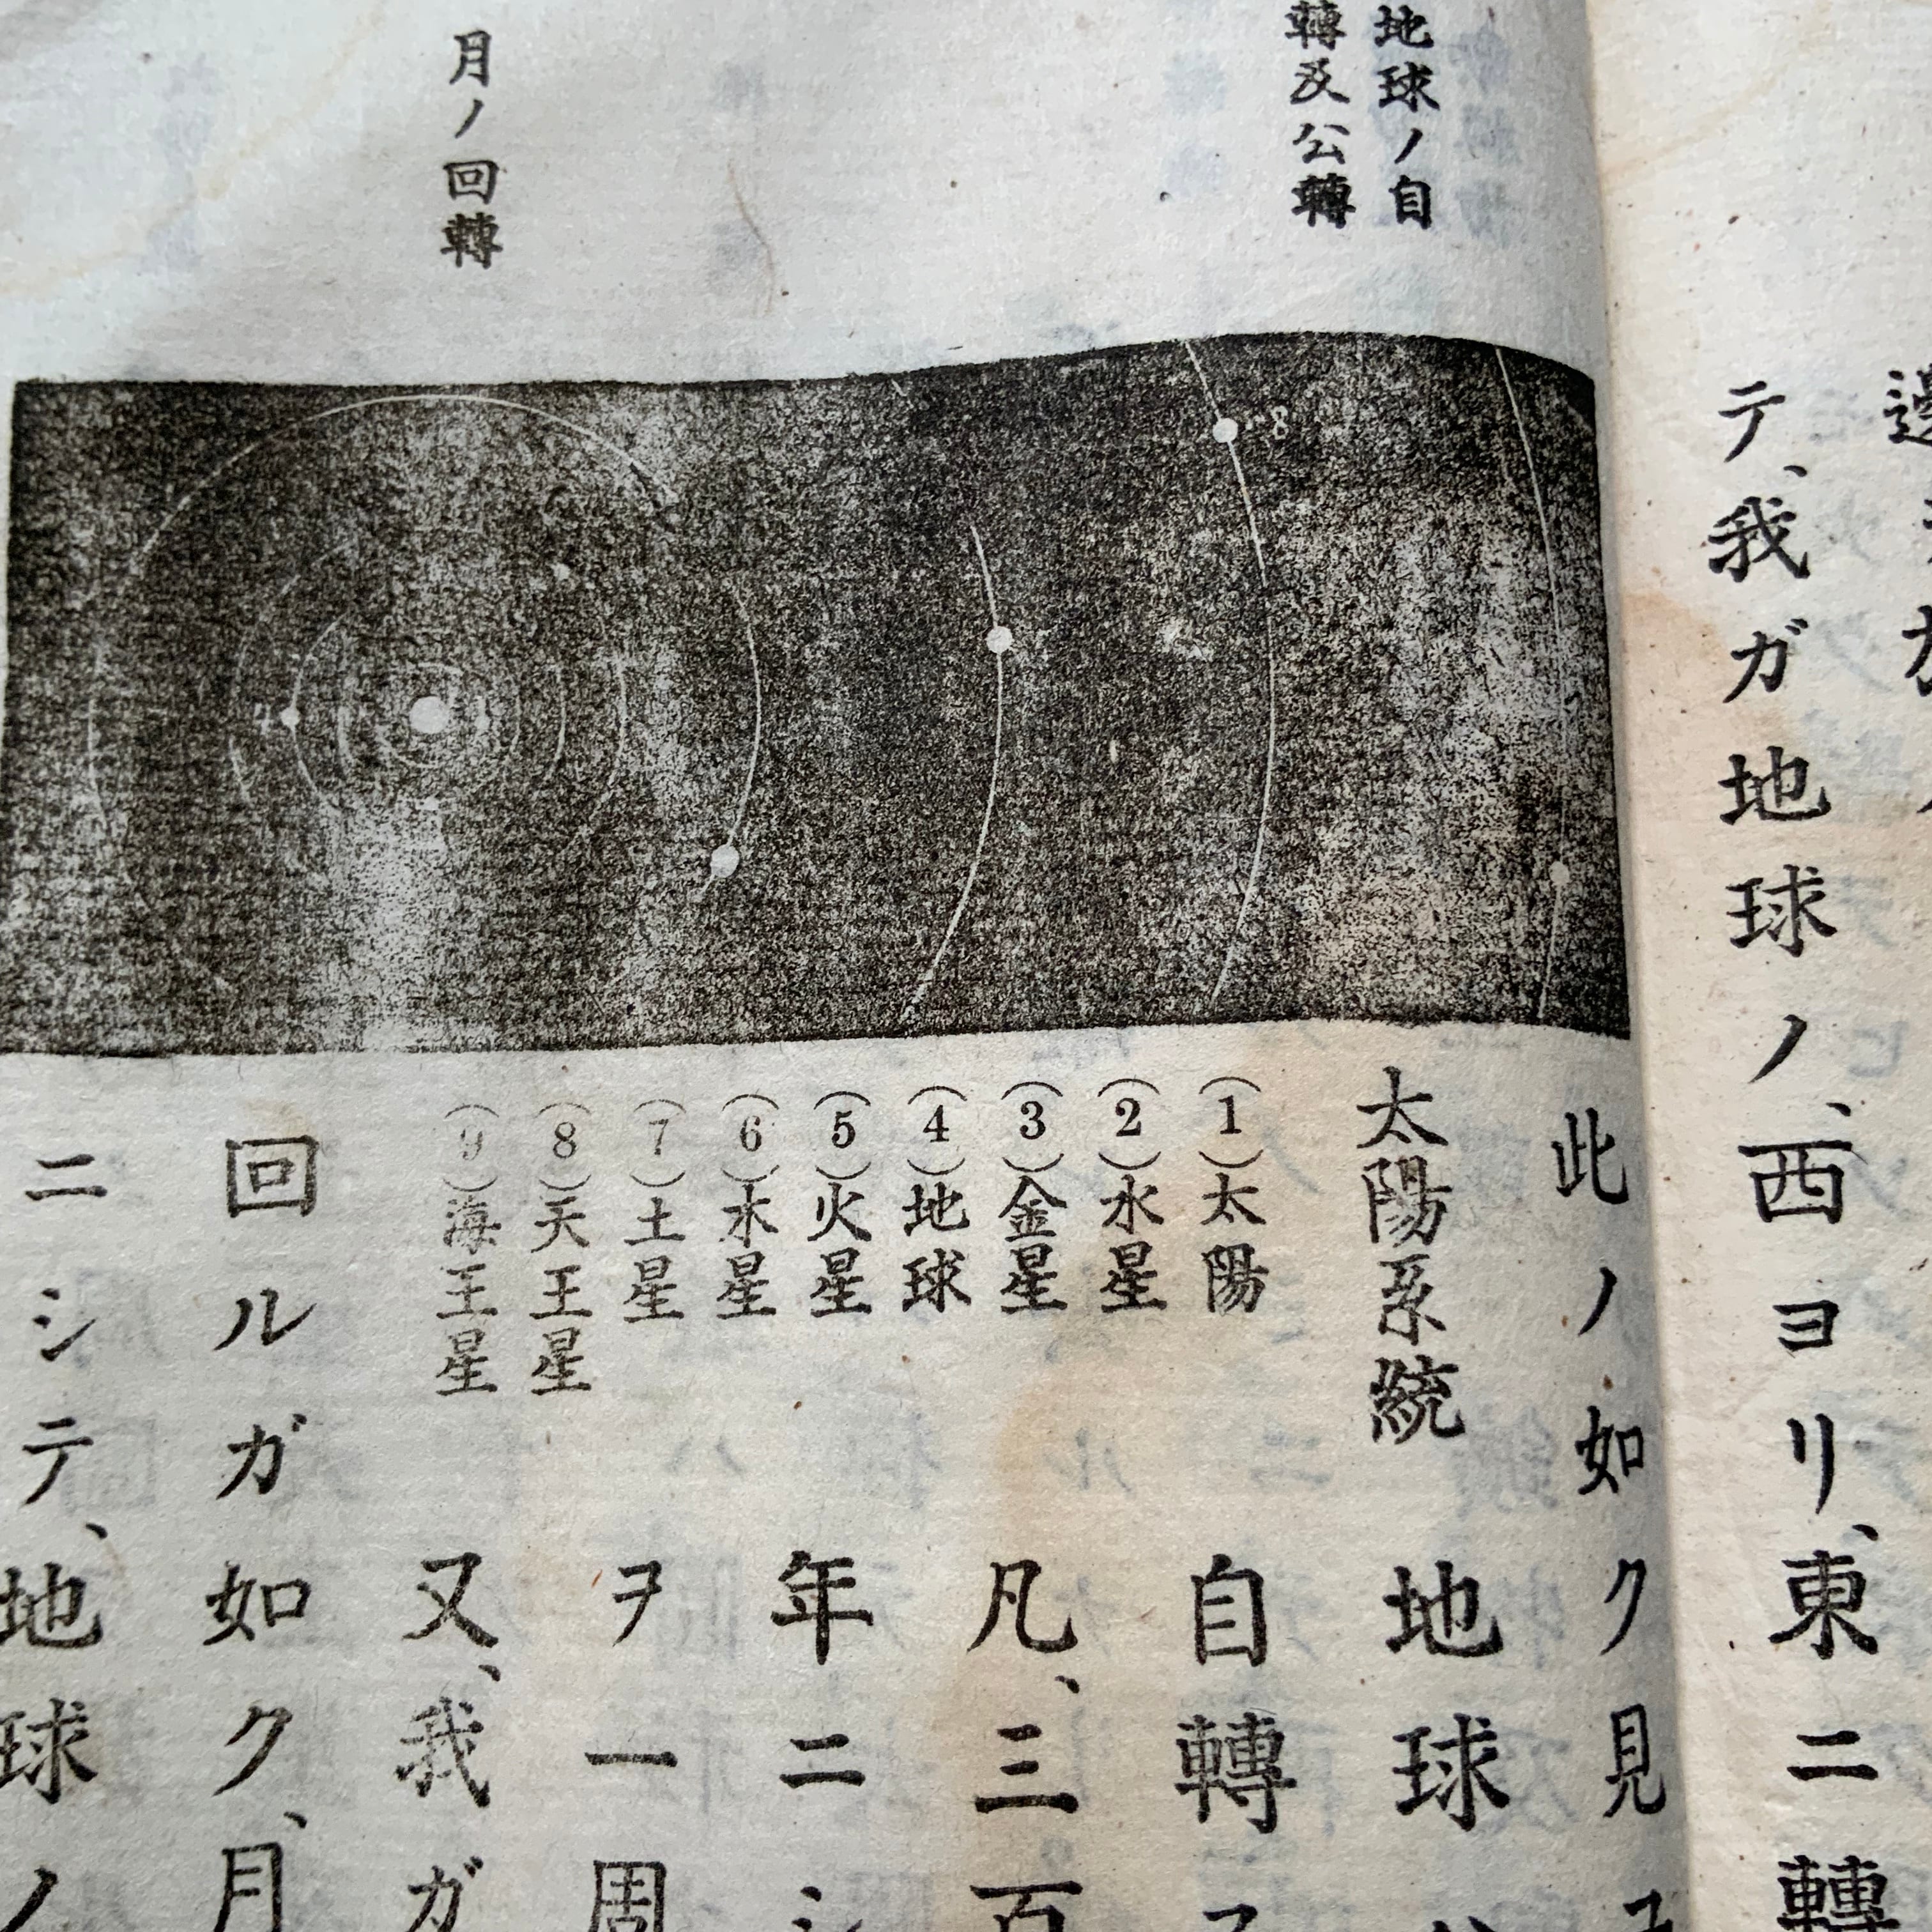 テ、我ガ地球ノ、西ヨリ、東ニ轉
地球ノ自
轉及公轉
月ノ回轉
此ノ如ク見ユ
8
太陽系統
(1)太陽
(2)水星
(3)金星
(4)地球
(5)火星
(6)木星
(7)土星
(8)天王星
(9)海王星
地球
自轉
凡、三百
年ニシ
ヲ一周
又、我ガ
回ルガ如ク、月
ニシテ、地球ノ